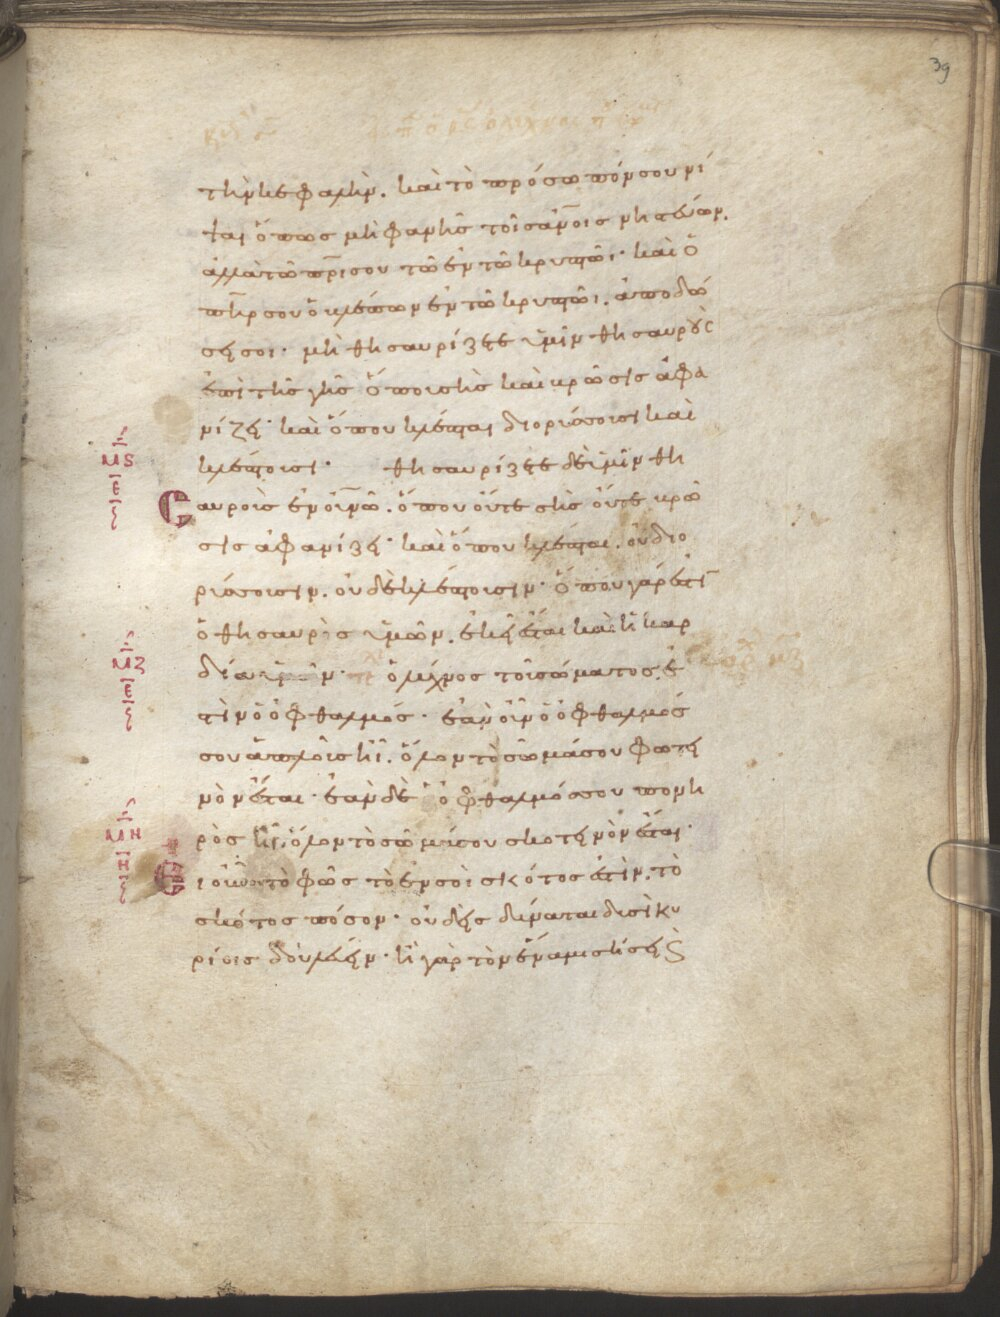 39
τὴν κεφαλὴν. καὶ τὸ πρόσωπόν σου νί
ψαι ὅπως μὴ φανῆς τοῖς ἀνοις νηστεύων.
ἀλλὰ τῶ πρι σου τῶ ἐν τῶ κρυπτῶι· καὶ ὁ
πηρ σου ὁ βλέπων ἐν τῶ κρυπτῶι. ἀποδώ
σει σοι· μὴ θησαυρίζετε ὑμῖν θησαυροὺς
ἐπὶ τῆς γῆς ὅπου σὴς καὶ βρῶσις ἀφα
νίζει· καὶ ὅπου κλέπται διορύσσουσι καὶ
κλέπτουσι· θησαυρίζετε δὲ ὑμῖν θη
σαυροὺς ἐν οὐνῶ. ὅπου οὔτε σὴς οὔτε βρῶ
σις ἀφανίζει· καὶ ὅπου κλέπται. οὐ διο
ρύσσουσιν. οὐδὲ κλέπτουσιν· ὅπου γάρ ἐστι
ὁ θησαυρὸς ὑμῶν. ἐκεῖ ἔσται καὶ ἡ καρ
δία ὑμῶν· ὁ λύχνος τοῦ σώματος ἐ
στὶν ὁ ὀφθαλμός· ἐὰν οὖν ὁ ὀφθαλμός
σου ἁπλοῦς ἦ. ὅλον τὸ σῶμά σου φωτει
νὸν ἔσται· ἐὰν δὲ ὁ ὀφθαλμός σου πονη
ρὸς ἦ. ὅλον τὸ σῶμά σου σκοτεινὸν ἔσται·
ι οὖν τὸ φῶς τὸ ἐν σοὶ σκότος ἐστὶν. τὸ
σκότος πόσον· οὐδεὶς δύναται δυσὶ κυ
ρίοις δουλεύειν· ἢ γὰρ τὸν ἕνα μισήσει
ΜϚ
Ε
ΜΖ
Ε
ΜΗ
Η